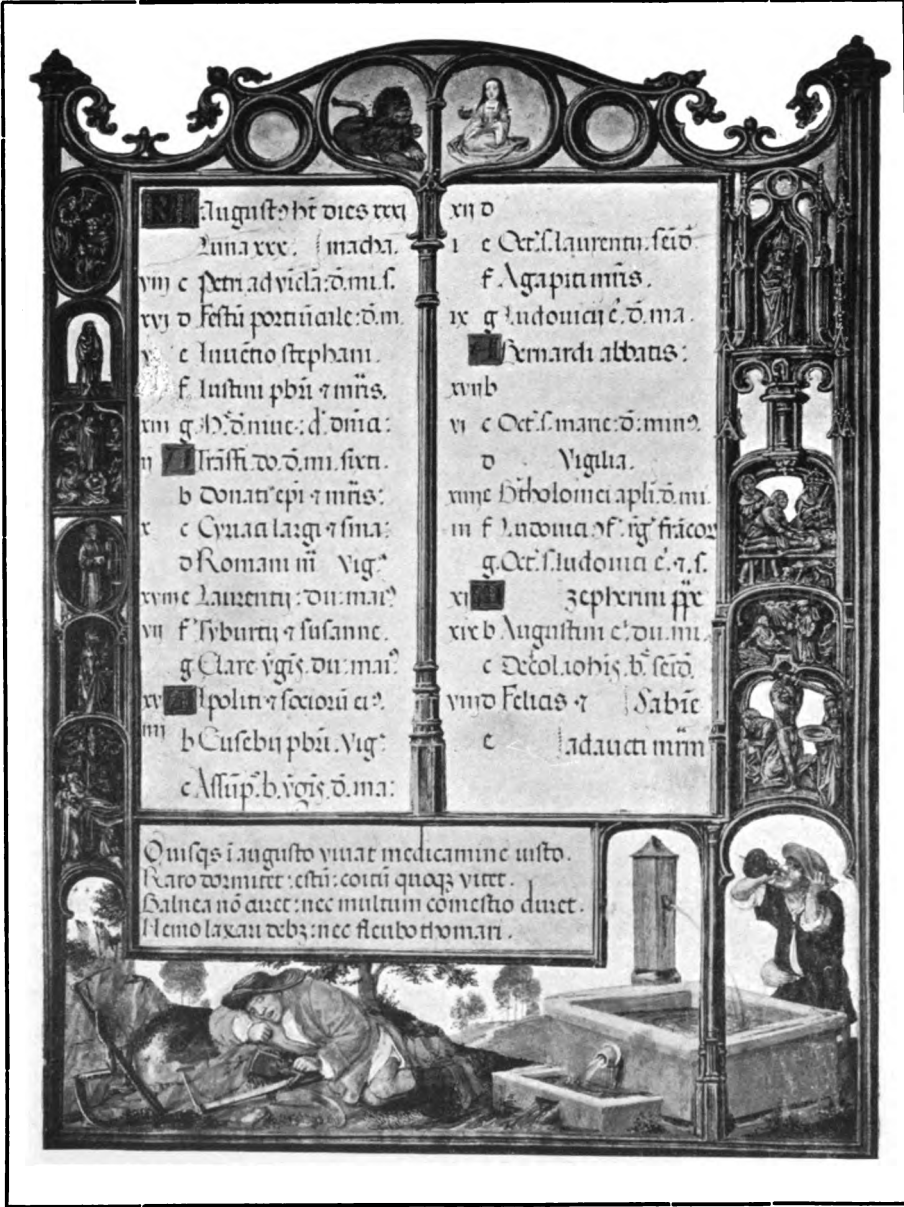 Kł Augustꝯ ht̄ dies xxxj
Luna xxx. macha.
viij c Petri ad vīcl̄a: d̄. mi. s.
xvj d Festū portiūcule: d̄. m.
e Inuētio stephani.
f Iustini pbr̄i ⁊ mr̄is.
xiij g
ij A sixti.
b Donati epī ⁊ mr̄is:
x c Cyriaci largi ⁊ sma:
d Romani m̄ Vigᵃ
xviij e Laurentij: du: maiꝰ
vij f Tyburtij ⁊ susanne.
g Clare v̄gis. du: maiꝰ
xv A Ipoliti ⁊ socioru eiꝰ.
iiij b Eusebij pbr̄i. Vigᵃ
c Assūp. b. v̄gis. d̄. ma:
xij d
i e Oct. s. laurentij. seid̄.
f Agapiti mr̄is.
ix g Ludouici e. d̄. ma.
A Bernardi abbatis:
xvij b
vi c Oct. s. marie: d̄: minꝰ.
d Vigilia.
xiiij e Bt̄holomei apl̄i. d̄. mi.
iij f Ludouici ꝯf. rḡ frācor
g Oct. s. ludouici e. ⁊. s.
xj A zepherini pp̄e
xix b Augustini e. du. mi.
c Decol. iohis. b. seid̄.
viij d Felicis ⁊ Sabie
e adaucti mr̄m
Quisqꝫ ī augusto viuat medicamine iusto.
Raro dormitet: estū: coitū quoqꝫ vitet.
Balnea nō curet: nec multum comestio duret.
Nemo laxari debꝫ: nec fleubothomari.